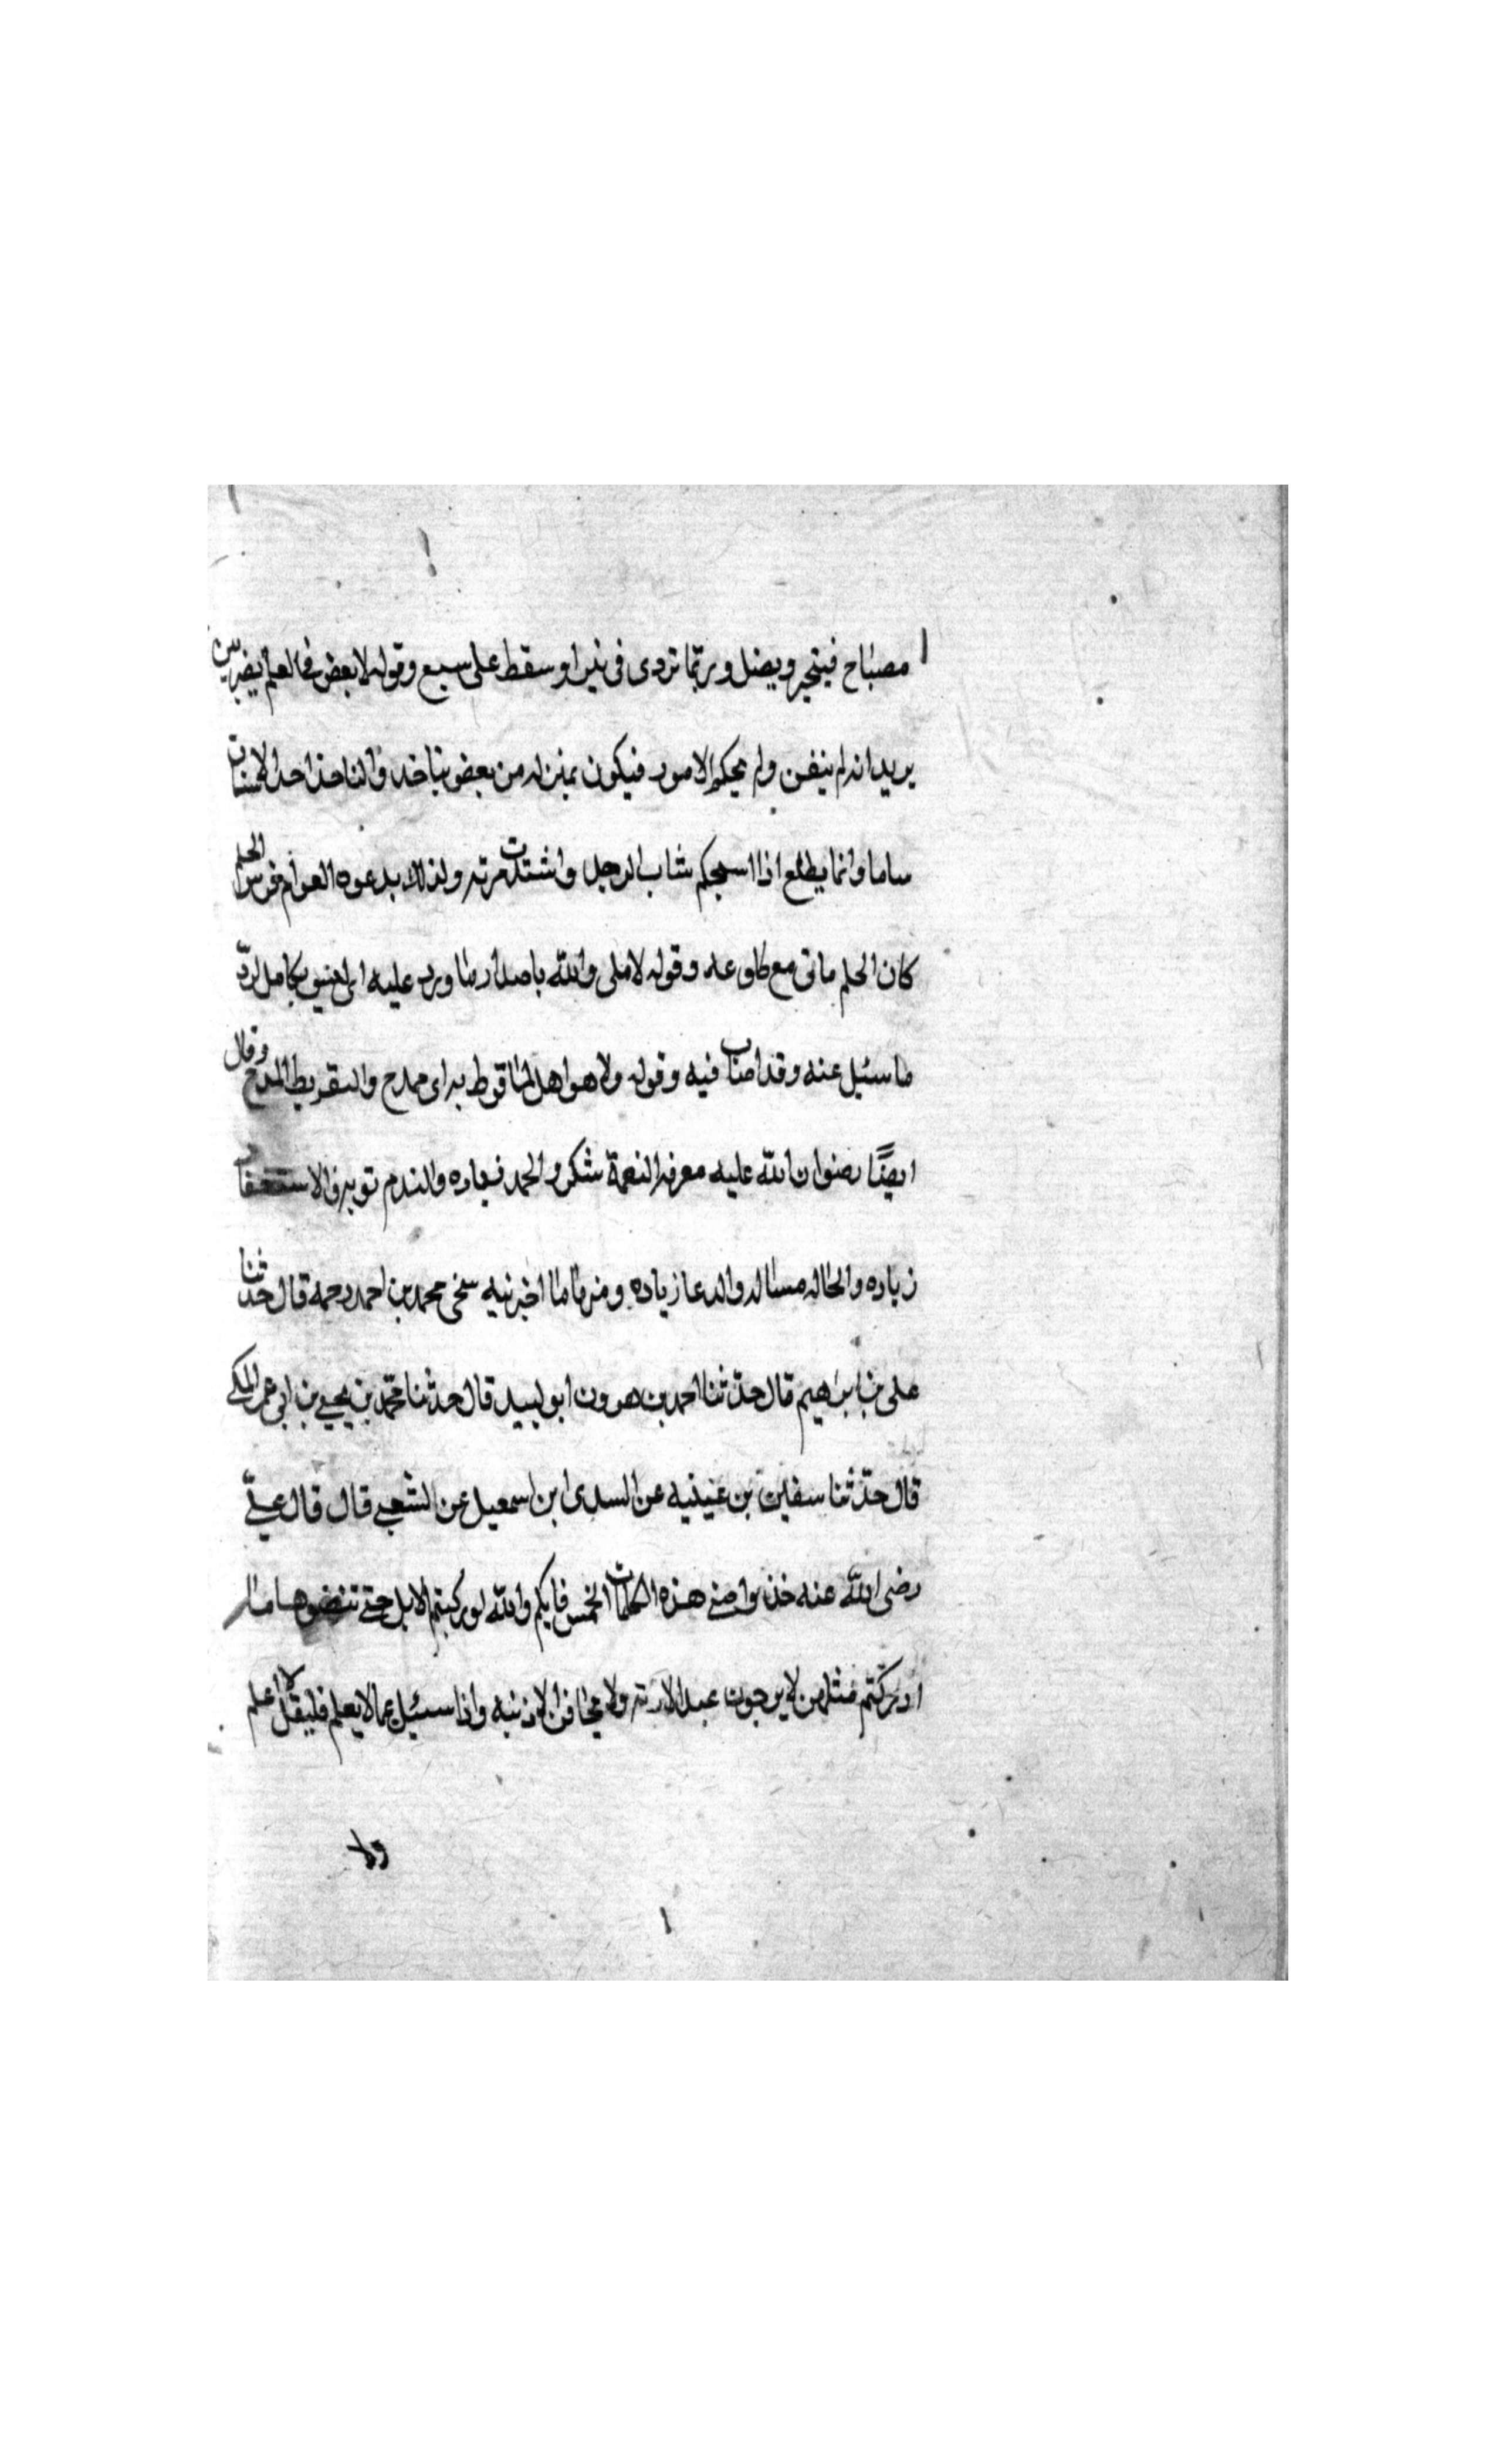 مصباح فيتحير ويضل وربما تردى في بئر او سقط على سبع وقوله لا يعض في العلم بضرس
يريد انه لم يتقن ولم يحكم الامور فيكون بمنزلة من يعض بناجذ والناجذ احد الاسنان
وانما يطلع اذا استحكم شاب الرجل واشتدت مرته ولذلك يدعوه العوام ضرس الحلم
كان الحلم ماتى مع طلوعه وقوله لا ملى والله باصدار ما ورد عليه اى ليس بكامل لرد
ما سئل عنه وقد اصاب فيه وقوله ولا هو اهل لما قرظ به اى مدح والتقريظ المدح وقال
ايضا رضوان الله عليه معرفة النعمة شكر والحمد زياده والندم توبه والاستغفار
زياده والحاله مساله والدعا زياده ومنه ما اخبرنيه محمد بن احمد رحمه قال حدثنا
على بن ابرهيم قال حدثنا احمد بن هرون ابو لبيد قال حدثنا محمد بن يحيى بن ابى عمر المكى
قال حدثنا سفين بن عيينه عن السدى ابن اسمعيل عن الشعبى قال قال على
رضى الله عنه خذوا منى هذه الكلمات الخمس فايكم والله لو ركبتم الابل حتى تنضوها ما
ادركتم مثلهن لا يرجون عبد الا ربه ولا يخافن الا ذنبه واذا سئل عما لا يعلم فليقل لا اعلم
ولا